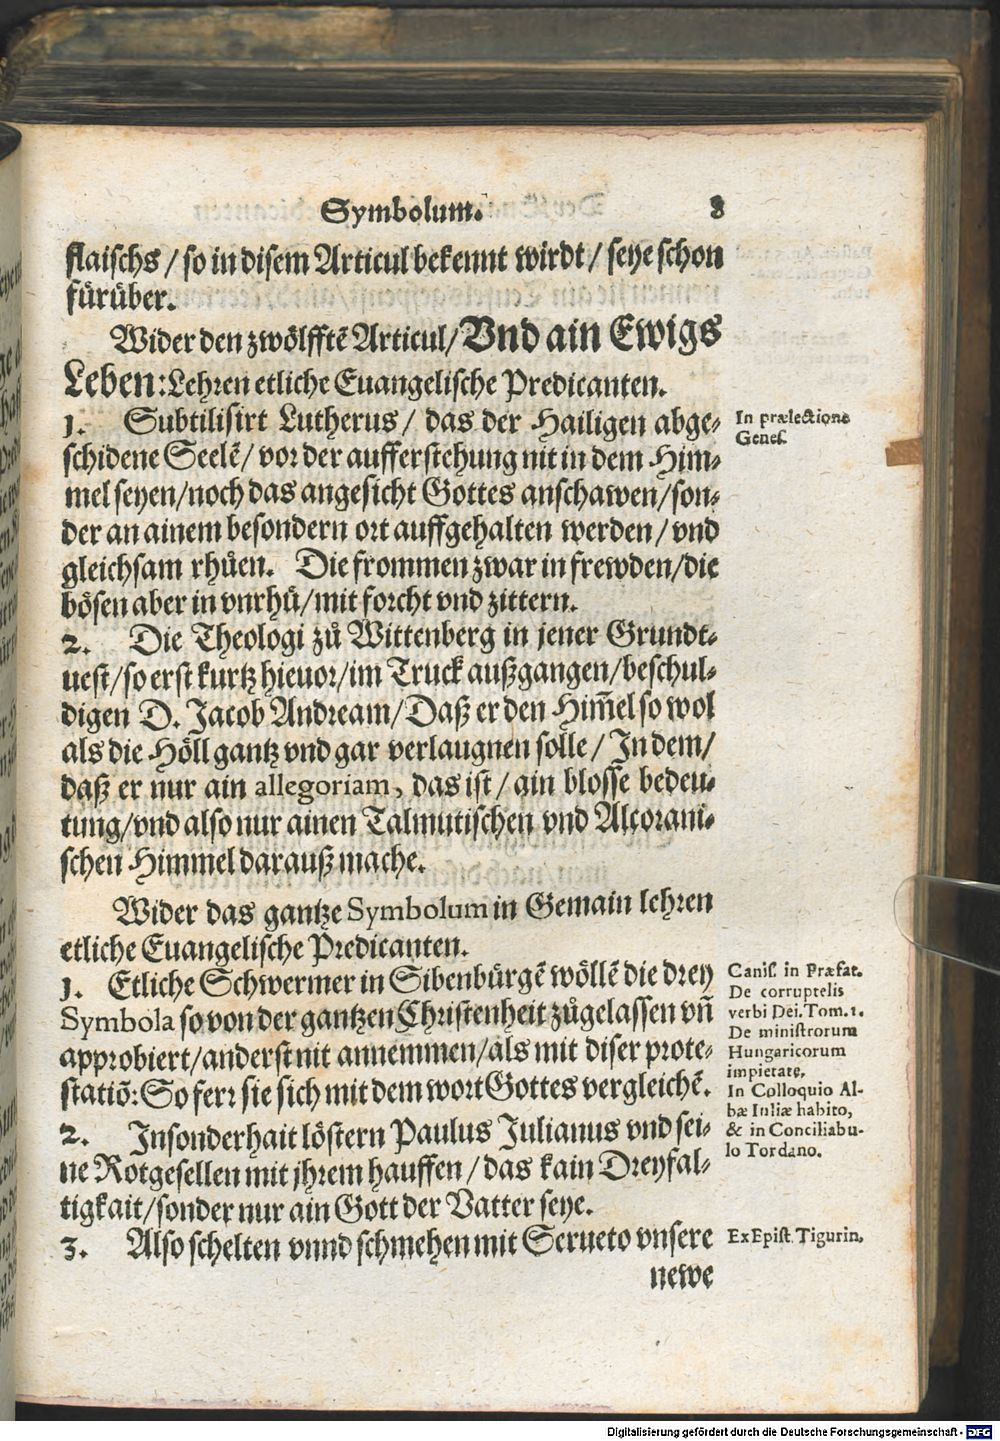 Symbolum. 8
flaischs / so in disem Articul bekennt wirdt / seye schon
fürüber.
Wider den zwölfftẽ Articul / Vnd ain Ewigs
Leben: Lehren etliche Euangelische Predicanten.
1. Subtilisirt Lutherus / das der Hailigen abge⸗
In prælectione
Genes.
schidene Seelẽ / vor der aufferstehung nit in dem Him⸗
mel seyen / noch das angesicht Gottes anschawen / son⸗
der an ainem besondern ort auffgehalten werden / vnd
gleichsam rhůen. Die frommen zwar in frewden / die
bösen aber in vnrhů / mit forcht vnd zittern.
2. Die Theologi zů Wittenberg in jener Grundt⸗
uest / so erst kurtz hieuor / im Truck außgangen / beschul⸗
digen D. Jacob Andream / Daß er den Him̃el so wol
als die Höll gantz vnd gar verlaugnen solle / In dem /
daß er nur ain allegoriam, das ist / ain blosse bedeu⸗
tung / vnd also nur ainen Talmutischen vnd Alcorani⸗
schen Himmel darauß mache.
Wider das gantze Symbolum in Gemain lehren
etliche Euangelische Predicanten.
1. Etliche Schwermer in Sibenbürgẽ wöllẽ die drey
Symbola so von der gantzen Christenheit zůgelassen vñ
approbiert / anderst nit annemmen / als mit diser prote⸗
statiõ: So ferr sie sich mit dem wort Gottes vergleichẽ.
Canis. in Præfat.
De corruptelis
verbi Dei. Tom. 1.
De ministrorum
Hungaricorum
impietate,
In Colloquio Al-
bæ Iuliæ habito,
& in Conciliabu-
lo Tordano.
2. Insonderhait löstern Paulus Julianus vnd sei⸗
ne Rotgesellen mit jhrem hauffen / das kain Dreyfal⸗
tigkait / sonder nur ain Gott der Vatter seye.
3. Also schelten vnnd schmehen mit Serueto vnsere
Ex Epist. Tigurin.
newe
Digitalisierung gefördert durch die Deutsche Forschungsgemeinschaft - DFG